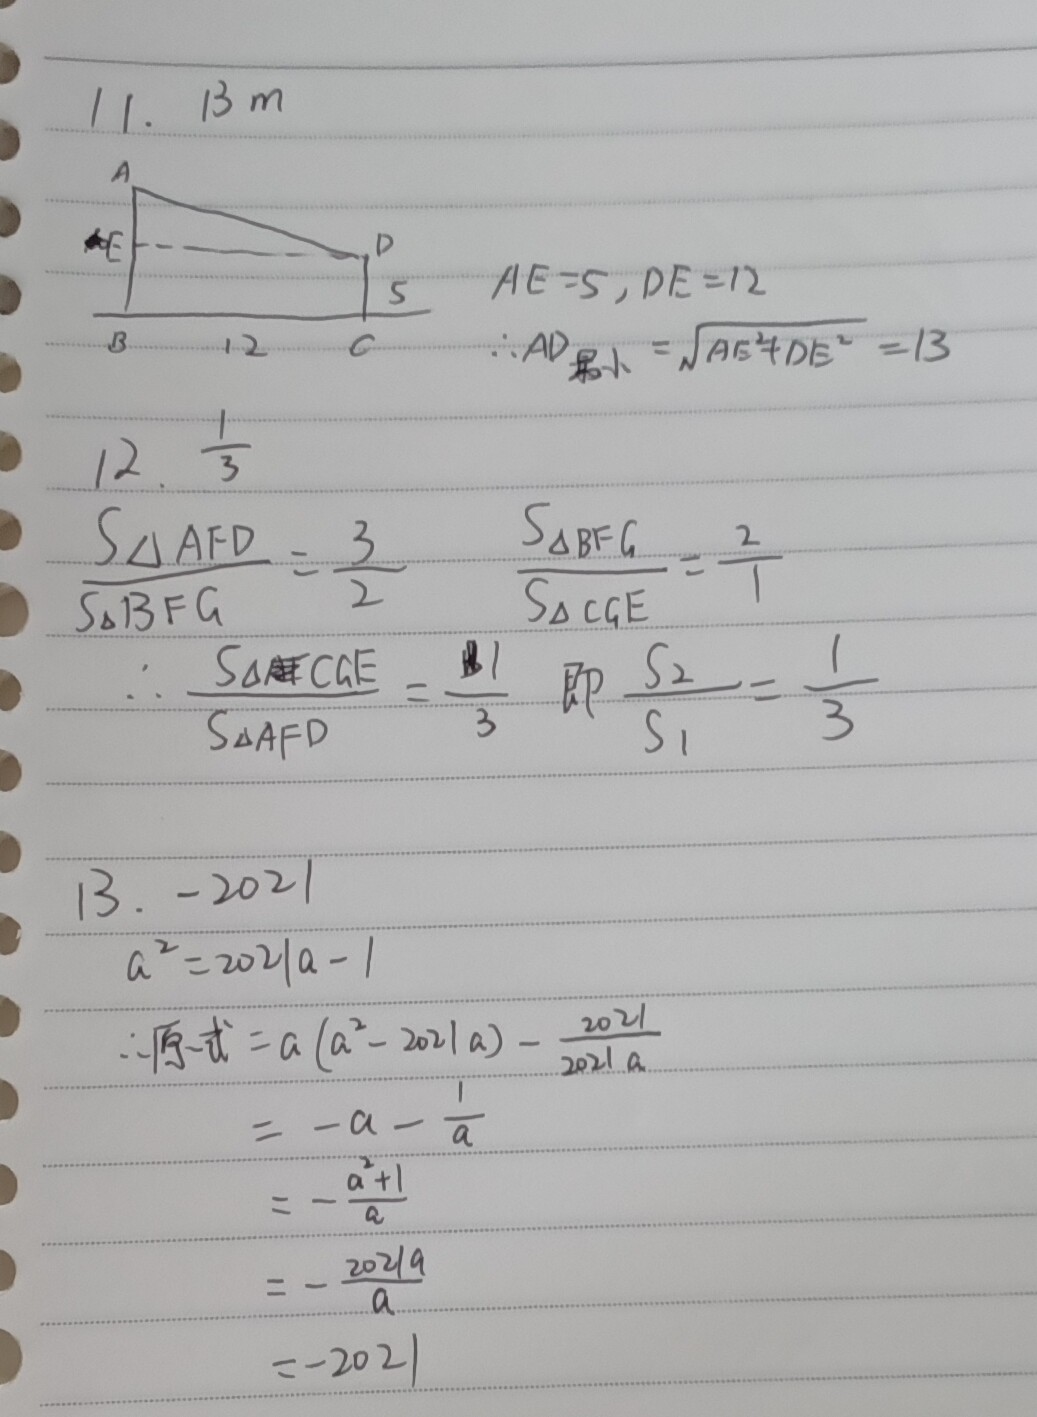 11. 13 m
A
E D
5
B 12 C
AE=5, DE=12
∴AD最小 = √(AE²+DE²) = 13
12. 1/3
S△AFD/S△BFG = 3/2 S△BFG/S△CGE = 2/1
∴ S△CGE/S△AFD = 1/3 即 S₂/S₁ = 1/3
13. -2021
a²=2021a-1
∴原式=a(a²-2021a)-2021/2021a
= -a-1/a
= -a²+1/a
= -2021a/a
=-2021